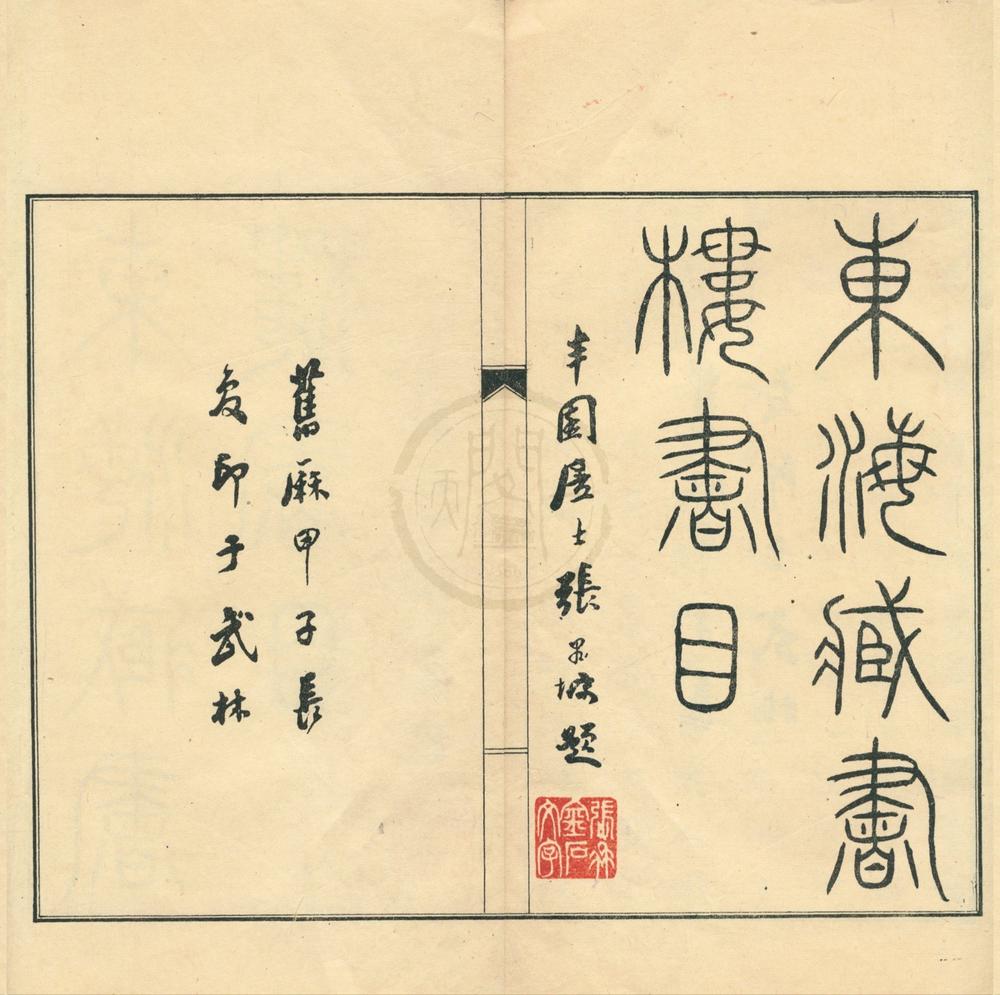 東海藏書
樓書目
園居士張題
舊厤甲子長
夏印于武林
張金石文字